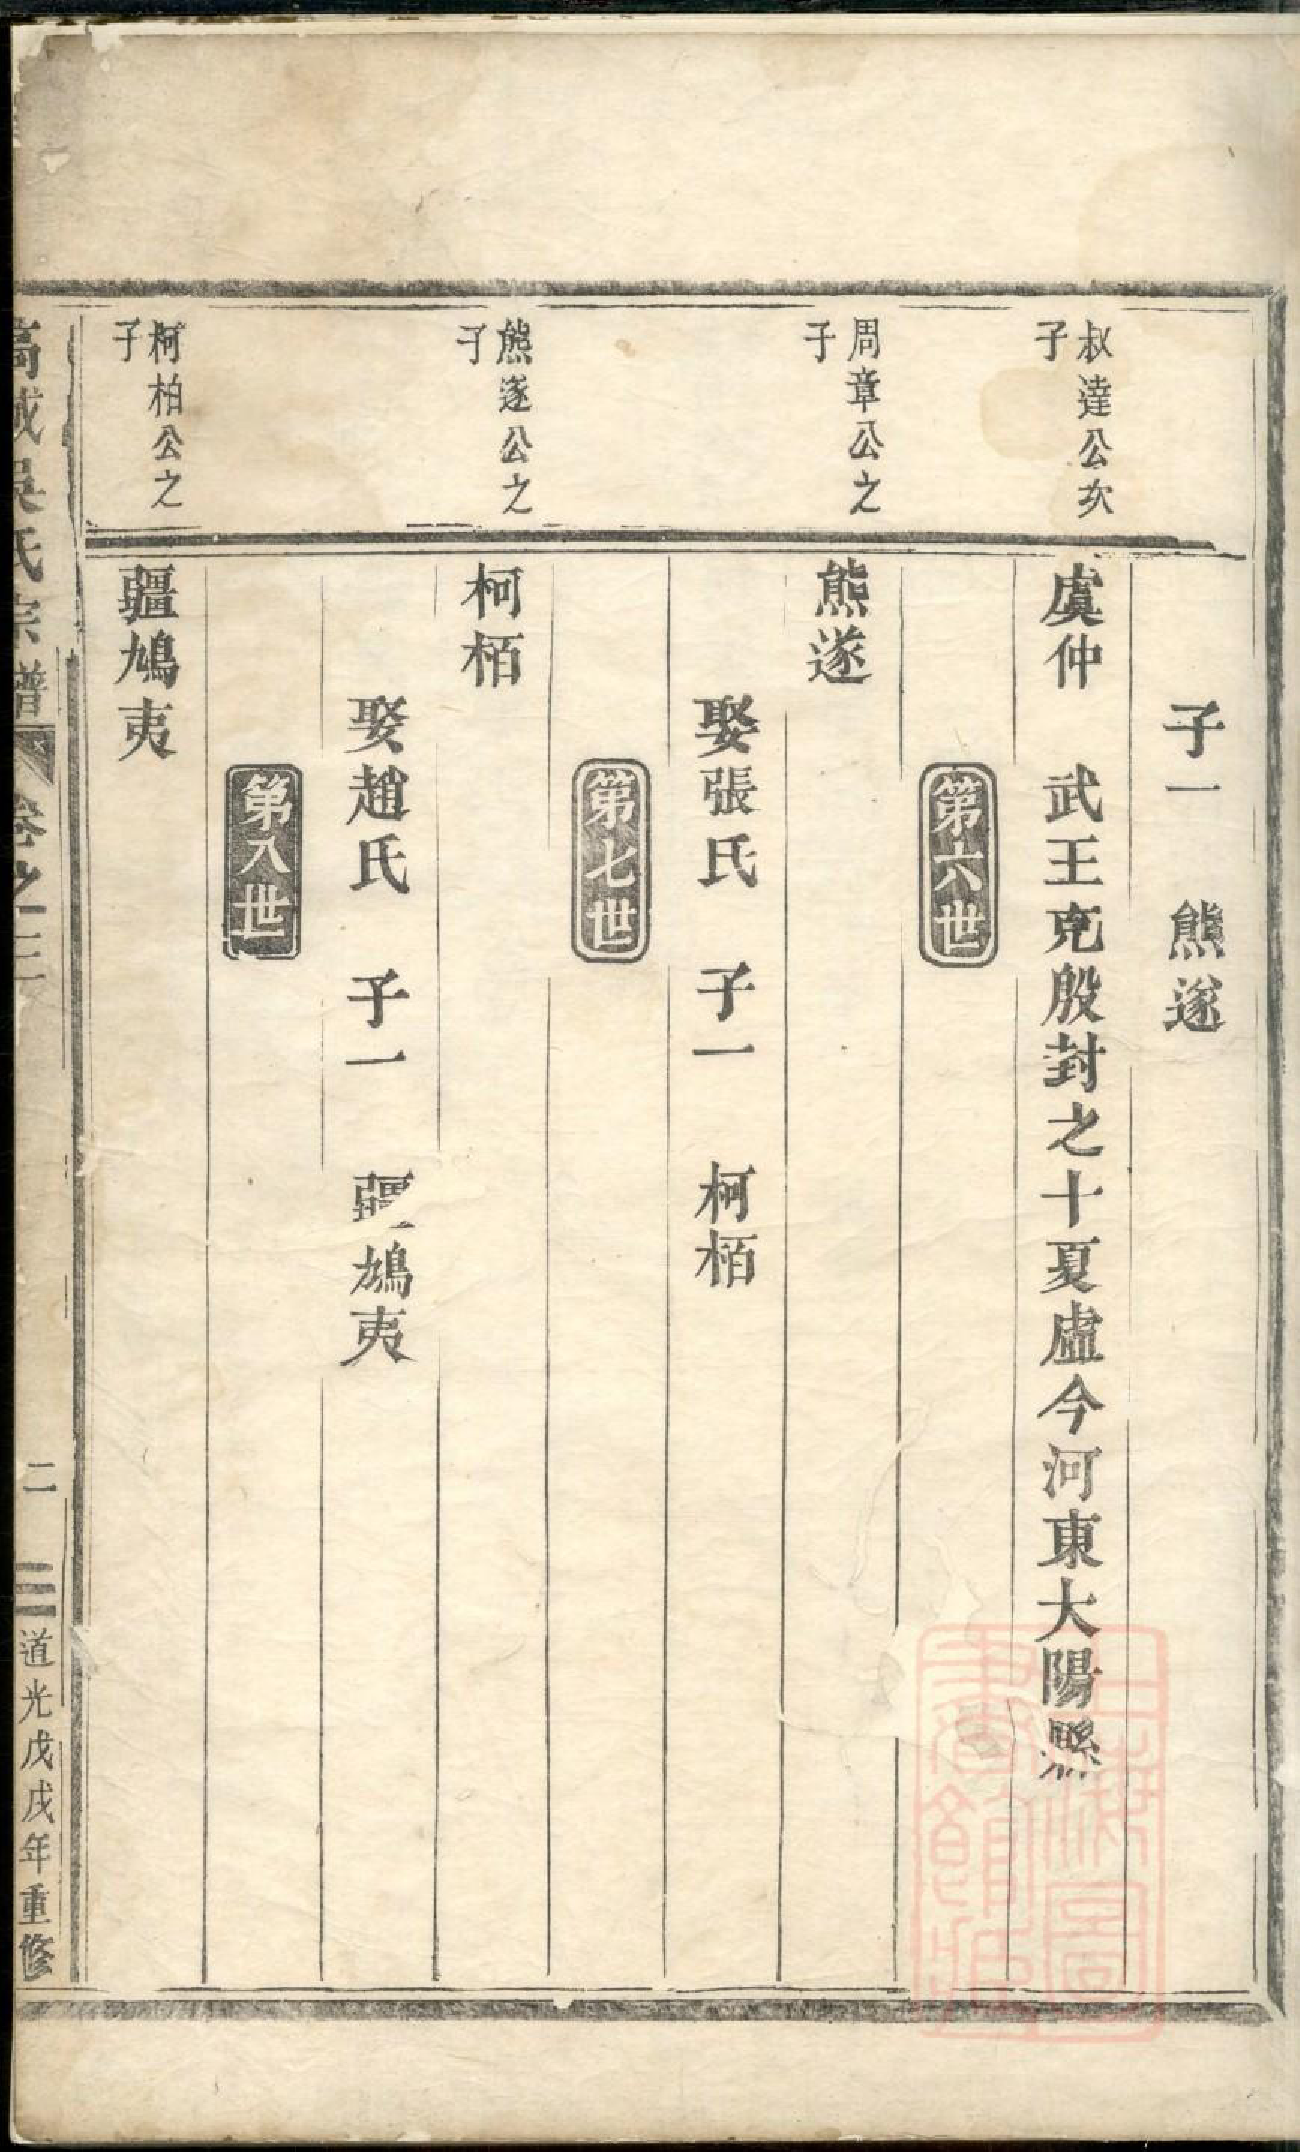 子一 熊遂
叔達公次子
虞仲 武王克殷封之十夏虛今河東大陽縣
第六世
周章公之子
熊遂
娶張氏 子一 柯栢
第七世
熊遂公之子
柯栢
娶趙氏 子一 疆鳩夷
第八世
柯柏公之子
疆鳩夷
吳氏宗譜 卷之三 二 道光戊戌年重修
上海圖書館藏